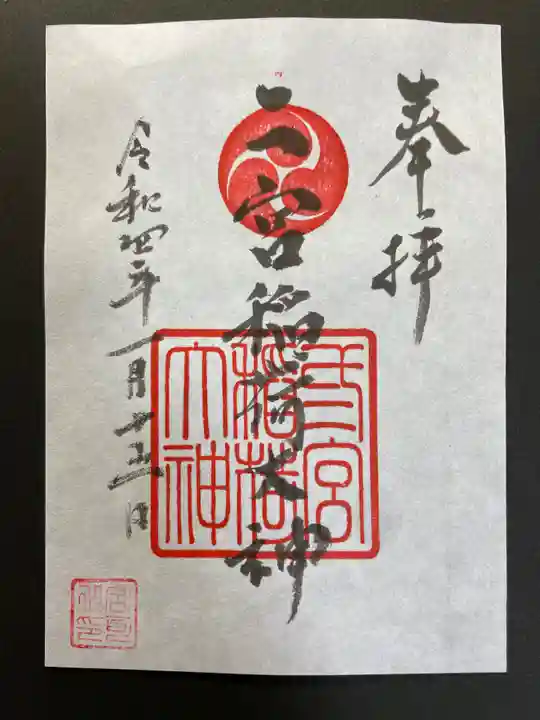 奉拝
二宮稲荷大神
令和四年一月十五日
二宮
稲荷
大神